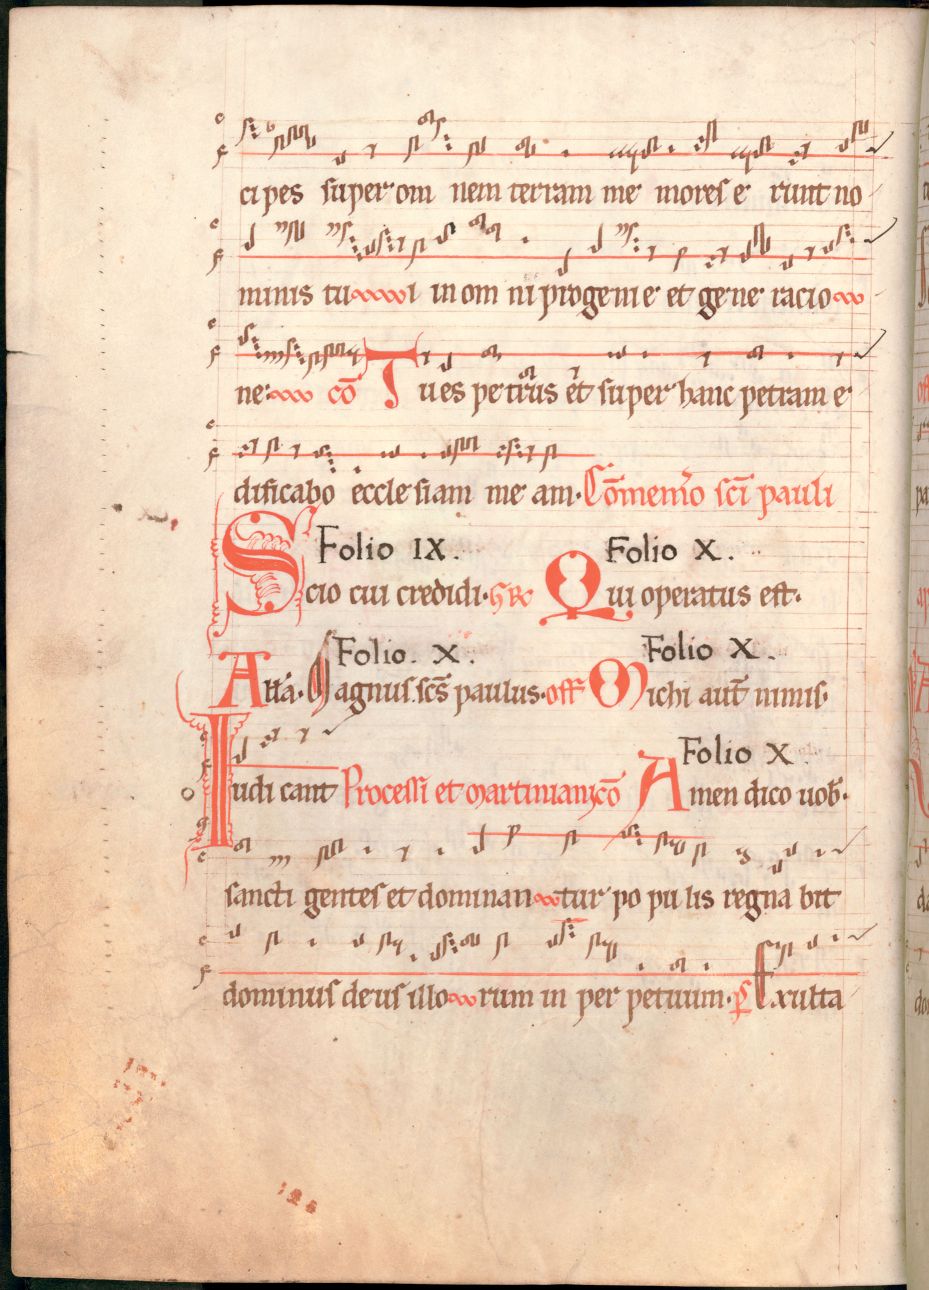 cipes super om nem terram me mores e runt no
minis tu i in om ni progenie et gene racio
ne: co͞ Tu es petrus et super hanc petram e
dificabo ecclesiam me am. Co͞memo͞ sci͞ pauli
Folio IX. Folio X.
Scio cui credidi. Qui operatus est.
Folio. X. Folio X.
All'a. Magnus sc͞s paulus. off Michi aut͞ nimis.
Folio X
Iudi cant Processi et martiniani co͞ Amen dico uob.
sancti gentes et dominan tur po pu lis regna bit
dominus deus illo rum in per petuum. ps͞ Exulta